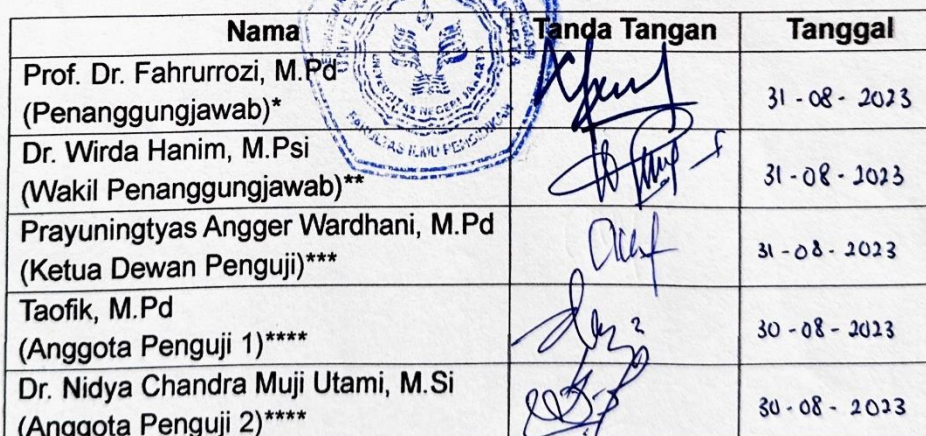 Nama Tanda Tangan Tanggal
Prof. Dr. Fahrurrozi, M.Pd
(Penanggungjawab)* 31 - 08 - 2023
Dr. Wirda Hanim, M.Psi
(Wakil Penanggungjawab)** 31 - 08 - 2023
Prayuningtyas Angger Wardhani, M.Pd
(Ketua Dewan Penguji)*** 31 - 08 - 2023
Taofik, M.Pd
(Anggota Penguji 1)**** 30 - 08 - 2023
Dr. Nidya Chandra Muji Utami, M.Si
(Anggota Penguji 2)**** 30 - 08 - 2023
UNIVERSITAS NEGERI JAKARTA
FAKULTAS ILMU PENDIDIKAN